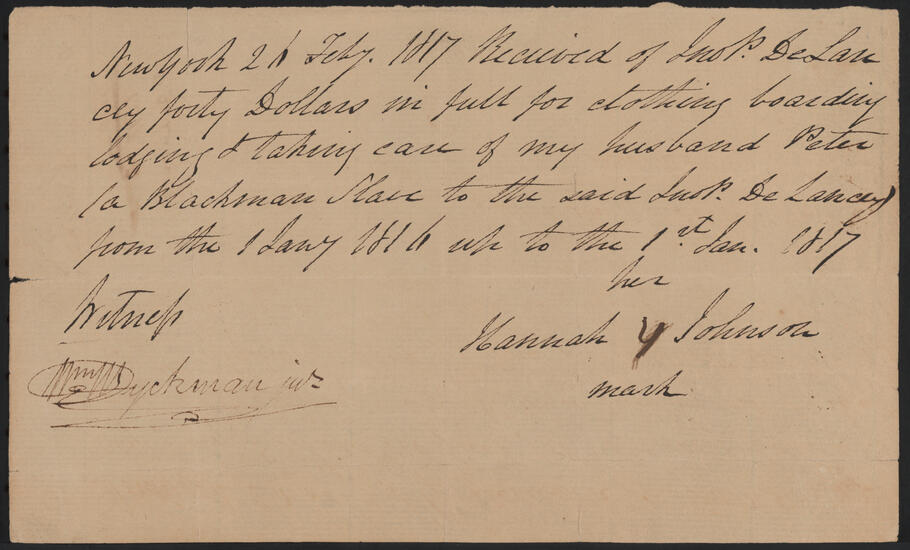 New York 26 Feby. 1817 Received of Jno P. De Lan
cey forty Dollars in full for clothing boarding
lodging & taking care of my husband Peter
(a Blackman Slave to the said Jno P. De Lancey)
from the 1 Jany 1816 up to the 1st. Jan. 1817
her
Witness
Hannah Johnson
Dyckman junr
mark